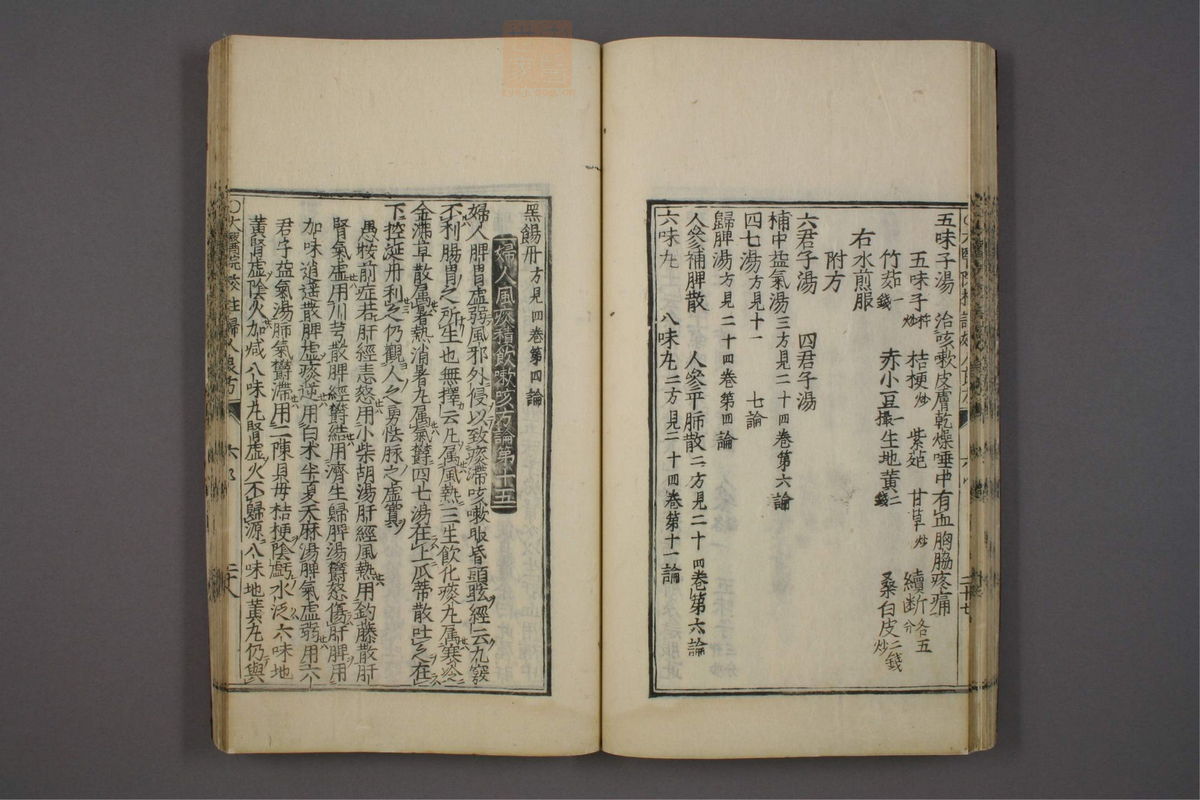 五味子湯 治咳嗽皮膚乾燥唾中有血胸膈疼痛
五味子 杵炒 桔梗 炒 紫菀 甘草 炒 續斷 各五分
竹茹 一錢 赤小豆 一撮 生地黃 二錢 桑白皮 炒 二錢
右水煎服
附方
六君子湯 四君子湯
補中益氣湯 三方見二十四卷第六論
四七湯 方見十一 七論
歸脾湯 方見二十四卷第四論
人參補脾散 人參平肺散 二方見二十四卷第六論
六味丸 八味丸 二方見二十四卷第十一論
二十七
黑錫丹 方見四卷第四論
婦人風痰積飲嗽咳方論第十五
婦人脾胃虛弱風邪外侵以致痰滯咳嗽眼昏頭眩經云九竅
不利腸胃之所生也無擇云凡属風熱三生飲化痰丸属寒
散属暑熱消暑丸属氣欝四七湯在上瓜蒂散吐之在
下控涎丹利之仍觀人之勇怯脉之虛實
愚按前症若肝經恚怒用小柴胡湯肝經風熱用鈎藤散肝
腎氣虛用川芎散脾經欝結用濟生歸脾湯欝怒傷肝脾用
加味逍遙散脾虛痰逆用白术半夏天麻湯脾氣虛弱用六
君子益氣湯肺氣欝滯用二陳貝母桔梗陰虛水泛六味地
黃腎虛陰火加减八味丸腎虛火不歸源八味地黃丸仍與
校註婦人良方 二十八